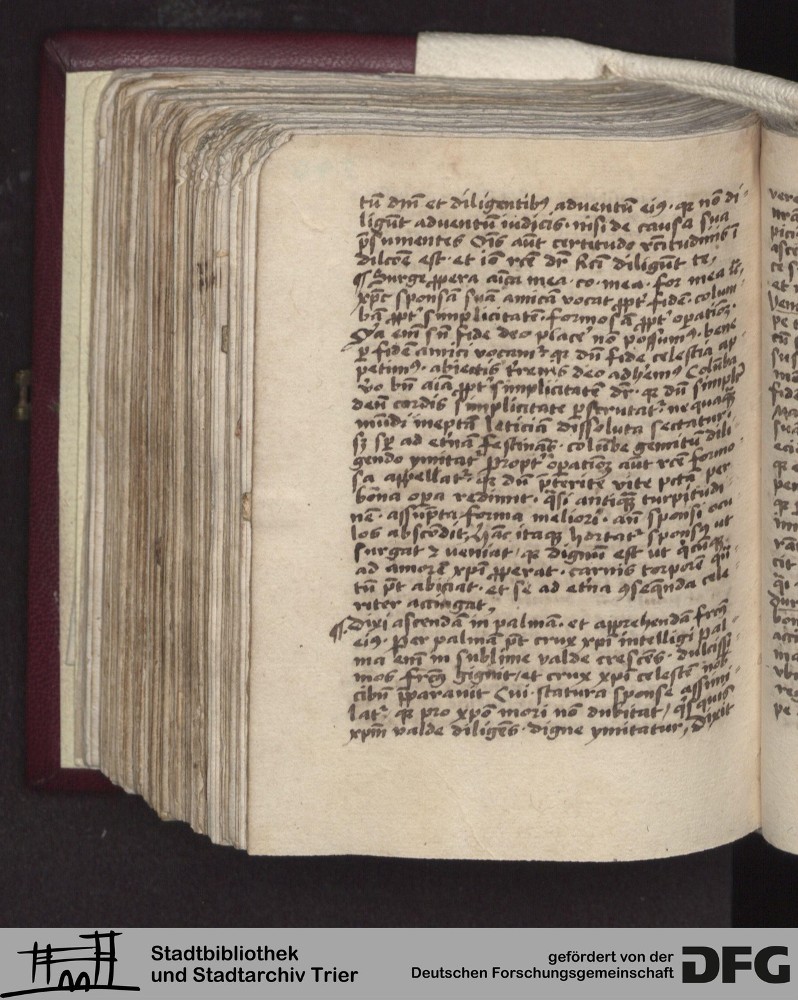 tū dm̄ et diligentibꝰ adventū eiꝰ · qꝛ nō di
ligūt adventū iudicis · nisi de causa sua
p̄sumentes Oīs aūt certitudo rc̄titudinis ī
dilcōe est · et iō rcē dr̄ Rcti diligūt te,
¶ Surge ꝓpera aīca mea · co · mea · for mea
xp̄c sponsā suā amicā vocat ꝓpt̓ fidē · colum
bā ꝓpt̓ simplicitatē · formosā ꝓpt̓ opatiōꝫ ·
Qa em̄ sn̄ fide deo place̓ nō possumꝰ · bene
ꝑ fidē amici vocamᷣ · qꝛ dū fide celestia ap
petimꝰ · abiectis deo adhemꝰ Columba
v̓o bn̄ aīa ꝓpt̓ simplicitatē dr̄ · qꝛ dū simpli
dei cordis simplicitate ꝑscrutatᷣ nequaqȝ
mūdi ineptā leticiā dissoluta sectatur ·
sȝ sp̄ ad et̓nā festinās · colūbe gemitū dili
gendo ymitatᷣ Propt̓ opatiōꝫ aūt rcē formo
sa appellatᷣ · qꝛ dū p̄terite vite pctā per
bona opa redimit · q̄si antiqȝ turpitudi
nē · assūpta forma meliori · an̄ sponsi ocu
los abscōdit, Hāc itaqȝ hortatᷣ sponsꝰ ut
surgat ⁊ veniat · qꝛ dignū est ut qcūqȝ
ad amorē xpi ꝓperat · carnis torporē qn̄
tū pt̄ abiciat · et se ad et̓na ꝯseq̄nda cele
riter accingat,
¶ Dixi ascendā in palmā · et apprehendā frc̄m
eiꝰ · Per palmā pt̄ crux xpi intelligi Pal
ma em̄ in sublime valde crescēs · dulcissi
mos frc̄ꝫ gignit / et crux xpi celestē nob
cibū p̄paravit Cui statura sponse assimi
latᷣ · qꝛ pro xpō mori nō dubitat / qsquis
xpm̄ valde diligēs · digne ymitatur, Dixit
Stadtbibliothek
und Stadtarchiv Trier
gefördert von der
Deutschen Forschungsgemeinschaft
DFG